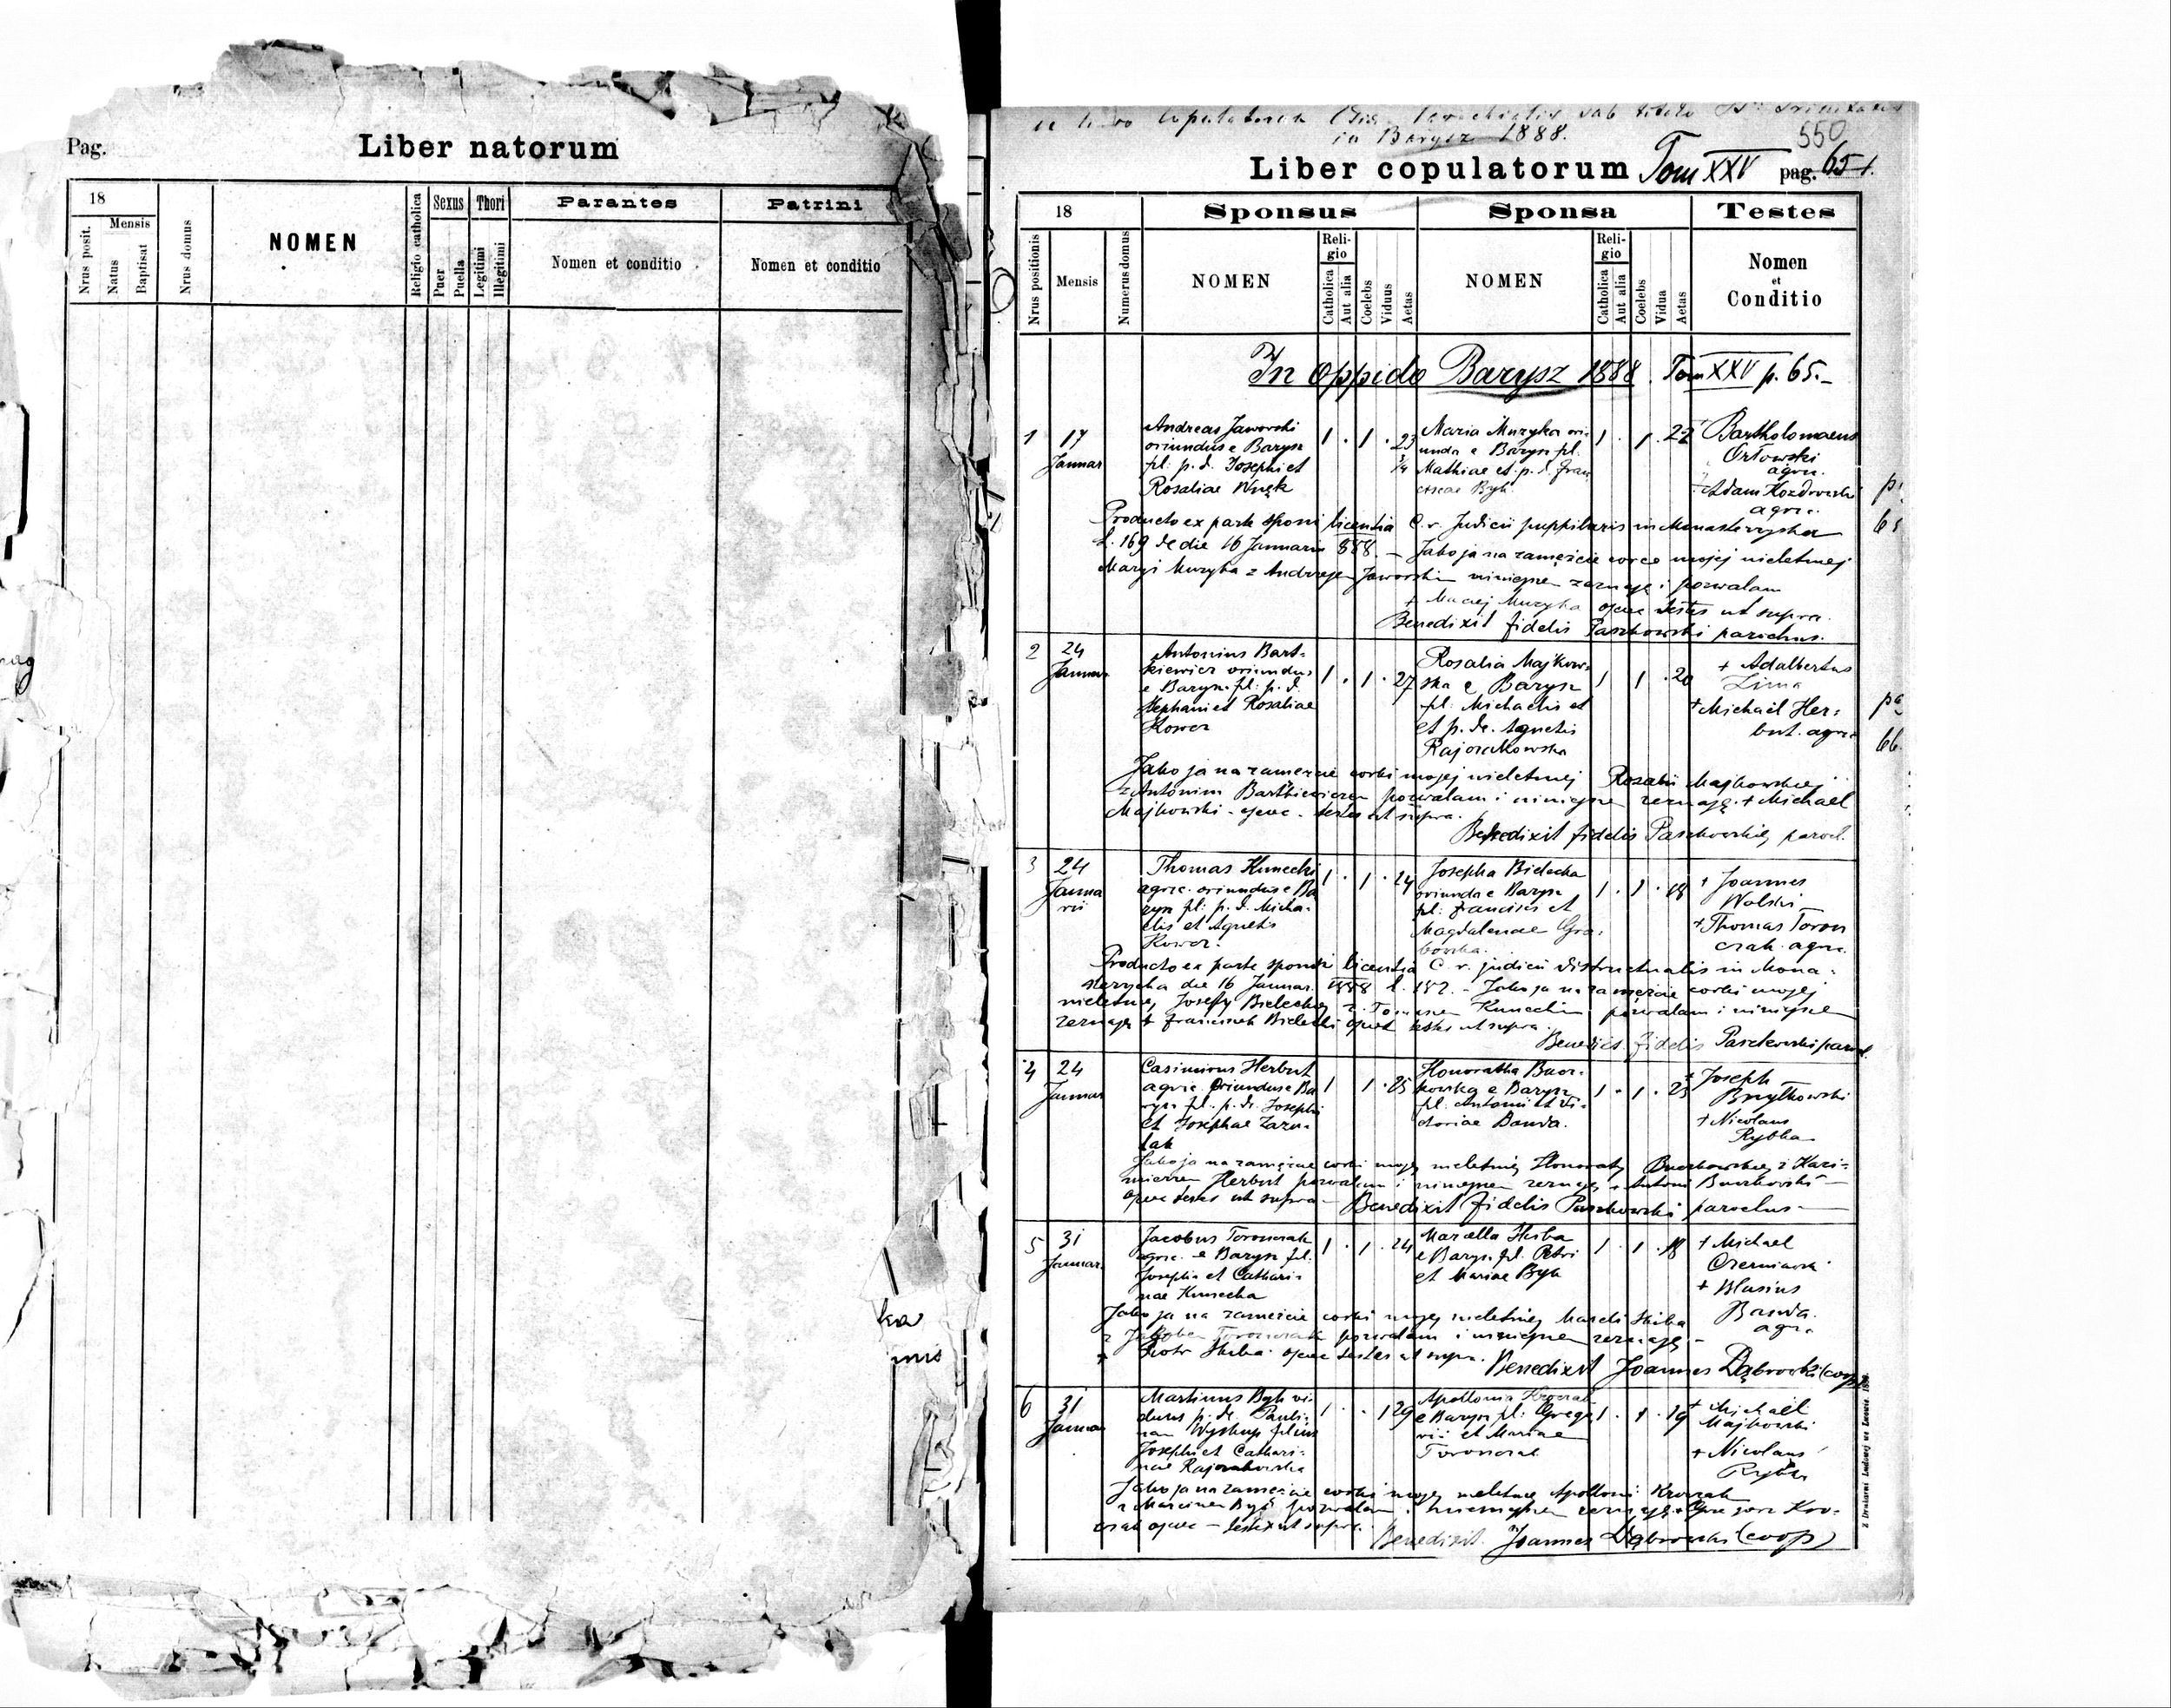 Pag.
Liber natorum
18
Mensis
Nrus posit.
Natus
Baptisat
Nrus domus
NOMEN
Religio catholica
Sexus
Puer
Puella
Thori
Legitimi
Illegitimi
Parantes
Nomen et conditio
Patrini
Nomen et conditio
copulatorum sub titulo
in Barysz 1888.
550
Liber copulatorum Tom XXV pag. 65
18
Sponsus
Sponsa
Testes
Nrus positionis
Mensis
Numerus domus
NOMEN
Reli-
gio
Catholica
Aut alia
Coelebs
Viduus
Aetas
NOMEN
Reli-
gio
Catholica
Aut alia
Coelebs
Vidua
Aetas
Nomen
et
Conditio
In oppido Barysz 1888. Tom XXV p. 65.-
1
17
Januar
Andreas Jaworski
oriundus e Barysz
fil. p. d. Josephi et
Rosaliae Wnęk
1 . 1 . 23
Maria Muzyka ori-
unda e Barysz fil.
Mathiae et p. d. Fran
ciscae Byk.
1 . 1 . 22
Bartholomaeus
Orłowski
agric.
+ Adam Kozdrowski
agric.
Producto ex parte sponsi licentia C. r. Judicii puppilaris in Monasterzyska
l. 169 de die 16 Januarii 888. – Jako ja na zamęście mojej nieletniej
Maryi Muzyka z Andrzejem Jaworskim niniejsze zeznaję i pozwalam
+ Maciej Muzyka ojciec testes ut supra.
Benedixit Fidelis Paszkowski parochus.
2
24
Januar
Antonius Bart-
kiewicz oriundus
e Barysz fil. p. d.
Stephani et Rosaliae
Kowcz
1 . 1 . 27
Rosalia Majkow-
ska e Barysz
fil. Michaelis et
et p. de. Agnetis
Rajczakowska
1 1 . 20
+ Adalbertus
Zima
+ Michael Her-
but. agric.
Jako ja na zamęście corki mojej nieletniej Rozalii Majkowskiej
z Antonim Bartkiewiczem pozwalam i niniejsze zeznaję. + Michael
Majkowski - ojciec - testes ut supra.
Benedixit Fidelis Paszkowski, paroch.
3
24
Janua
rii
Thomas Kunecki
agric. oriundus e Ba
rysz fil. p. d. Micha-
elis et Agnetis
Kowcz.
1 . 1 . 24
Josepha Bielecka
oriunda e Barysz
fil. Francisci et
Magdalenae Gra-
bowska.
1 . 1 . 18
+ Joannes
Wolski
+ Thomas Toron
czak agric.
Producto ex parte sponsi licentia C. r. judicii districtualis in Mona-
sterzyska die 16 Januar. 1888 l. 182. - Jako ja na zamęście corki mojej
nieletniej Josefy Bieleckiej z Tomaszem Kuneckim pozwalam i niniejsze
zeznaję + Franciszek Bielecki ojciec testes ut supra.
Benedict. Fidelis Paszkowski paroch.
4
24
Januar
Casimirus Herbut
agric. oriundus e Ba
rysz fil. p. d. Josephi
et Josephae Zazu-
lak
1 1 . 25
Honoratha Bucz-
kowska e Barysz
fil. Antonii et Vi-
ctoriae Banda.
1 . 1 . 23
+ Joseph
Brytkowski
+ Nicolaus
Rybka
Jako ja na zamęście corki mojej nieletniej Honoraty Buczkowskiej z Kazi-
mierzem Herbut pozwalam i niniejszem zeznaję + Antoni Buczkowski
ojciec testes ut supra – Benedixit Fidelis Paszkowski parochus
5
31
Januar.
Jacobus Toronczak
agric. e Barysz fil.
Josephi et Cathari-
nae Kunecka
1 . 1 . 24
Marcella Skiba
e Barysz fil. Petri
et Mariae Byk
1 . 1 . 18
+ Michael
Czerniawski
+ Blasius
Banda.
agric.
Jako ja na zamęście corki mojej nieletniej Marceli Skiba
z Jakobem Toronczak pozwalam i niniejszem zeznaję -
+ Piotr Skiba ojciec testes ut supra. Benedixit Joannes Dąbrowski (coop)
6
31
Januar
Martinus Byk vi-
duus p. de. Pauli-
nam Wyskup filius
Josephi et Cathari-
nae Rajczakowska
1 . . 1 29
Apollonia Krozczak
e Barysz fil. Grego
rii et Mariae
Toronczak
1 . 1 . 19
+ Michael
Majkowski
+ Nicolaus
Rybka
Jako ja na zamęście corki mojej nieletniej Apolloni
z Marcinem Byk pozwalam i niniejszem zeznaję +
ojciec – testes ut supra.
Benedixit Joannes Dąbrowski (coop)
Z Drukarni Ludowej we Lwowie.